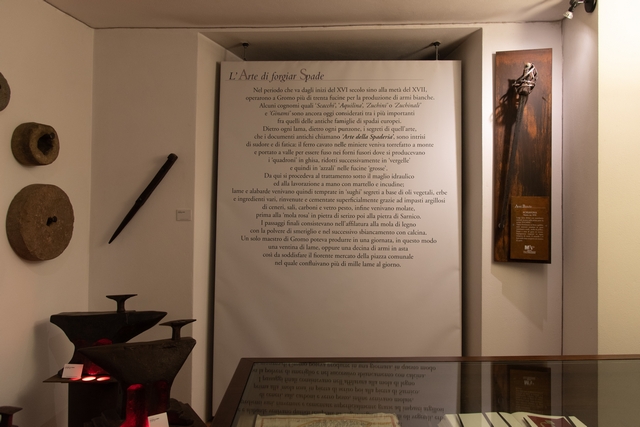 L'Arte di forgiar Spade
Nel periodo che va dagli inizi del XVI secolo sino alla metà del XVII,
operarono a Gromo più di trenta fucine per la produzione di armi bianche.
Alcuni cognomi quali 'Scacchi', 'Aquilina', 'Zuchini' o 'Zuchinali'
e 'Ginami' sono ancora oggi considerati tra i più importanti
fra quelli delle antiche famiglie di spadai europei.
Dietro ogni lama, dietro ogni punzone, i segreti di quell'arte,
che i documenti antichi chiamano 'Arte della Spaderia', sono intrisi
di sudore e di fatica: il ferro cavato nelle miniere veniva torrefatto a monte
e portato a valle per essere fuso nei forni fusori dove si producevano
i 'quadroni' in ghisa, ridotti successivamente in 'vergelle'
e quindi in 'azzali' nelle fucine 'grosse'.
Da qui si procedeva al trattamento sotto il maglio idraulico
ed alla lavorazione a mano con martello e incudine:
lame e alabarde venivano quindi temprate in 'sughi' segreti a base di oli vegetali, erbe
e ingredienti vari, rinvenute e cementate superficialmente grazie ad impasti argillosi
di ceneri, sali, carboni e vetro pesto, infine venivano molate,
prima alla 'mola rosa' in pietra di serizo poi alla pietra di Sarnico.
I passaggi finali consistevano nell'affilatura alla mola di legno
con la polvere di smeriglio e nel successivo sbiancamento con calcina.
Un solo maestro di Gromo poteva produrre in una giornata, in questo modo
una ventina di lame, oppure una decina di armi in asta
così da soddisfare il fiorente mercato della piazza comunale
nel quale confluivano più di mille lame al giorno.